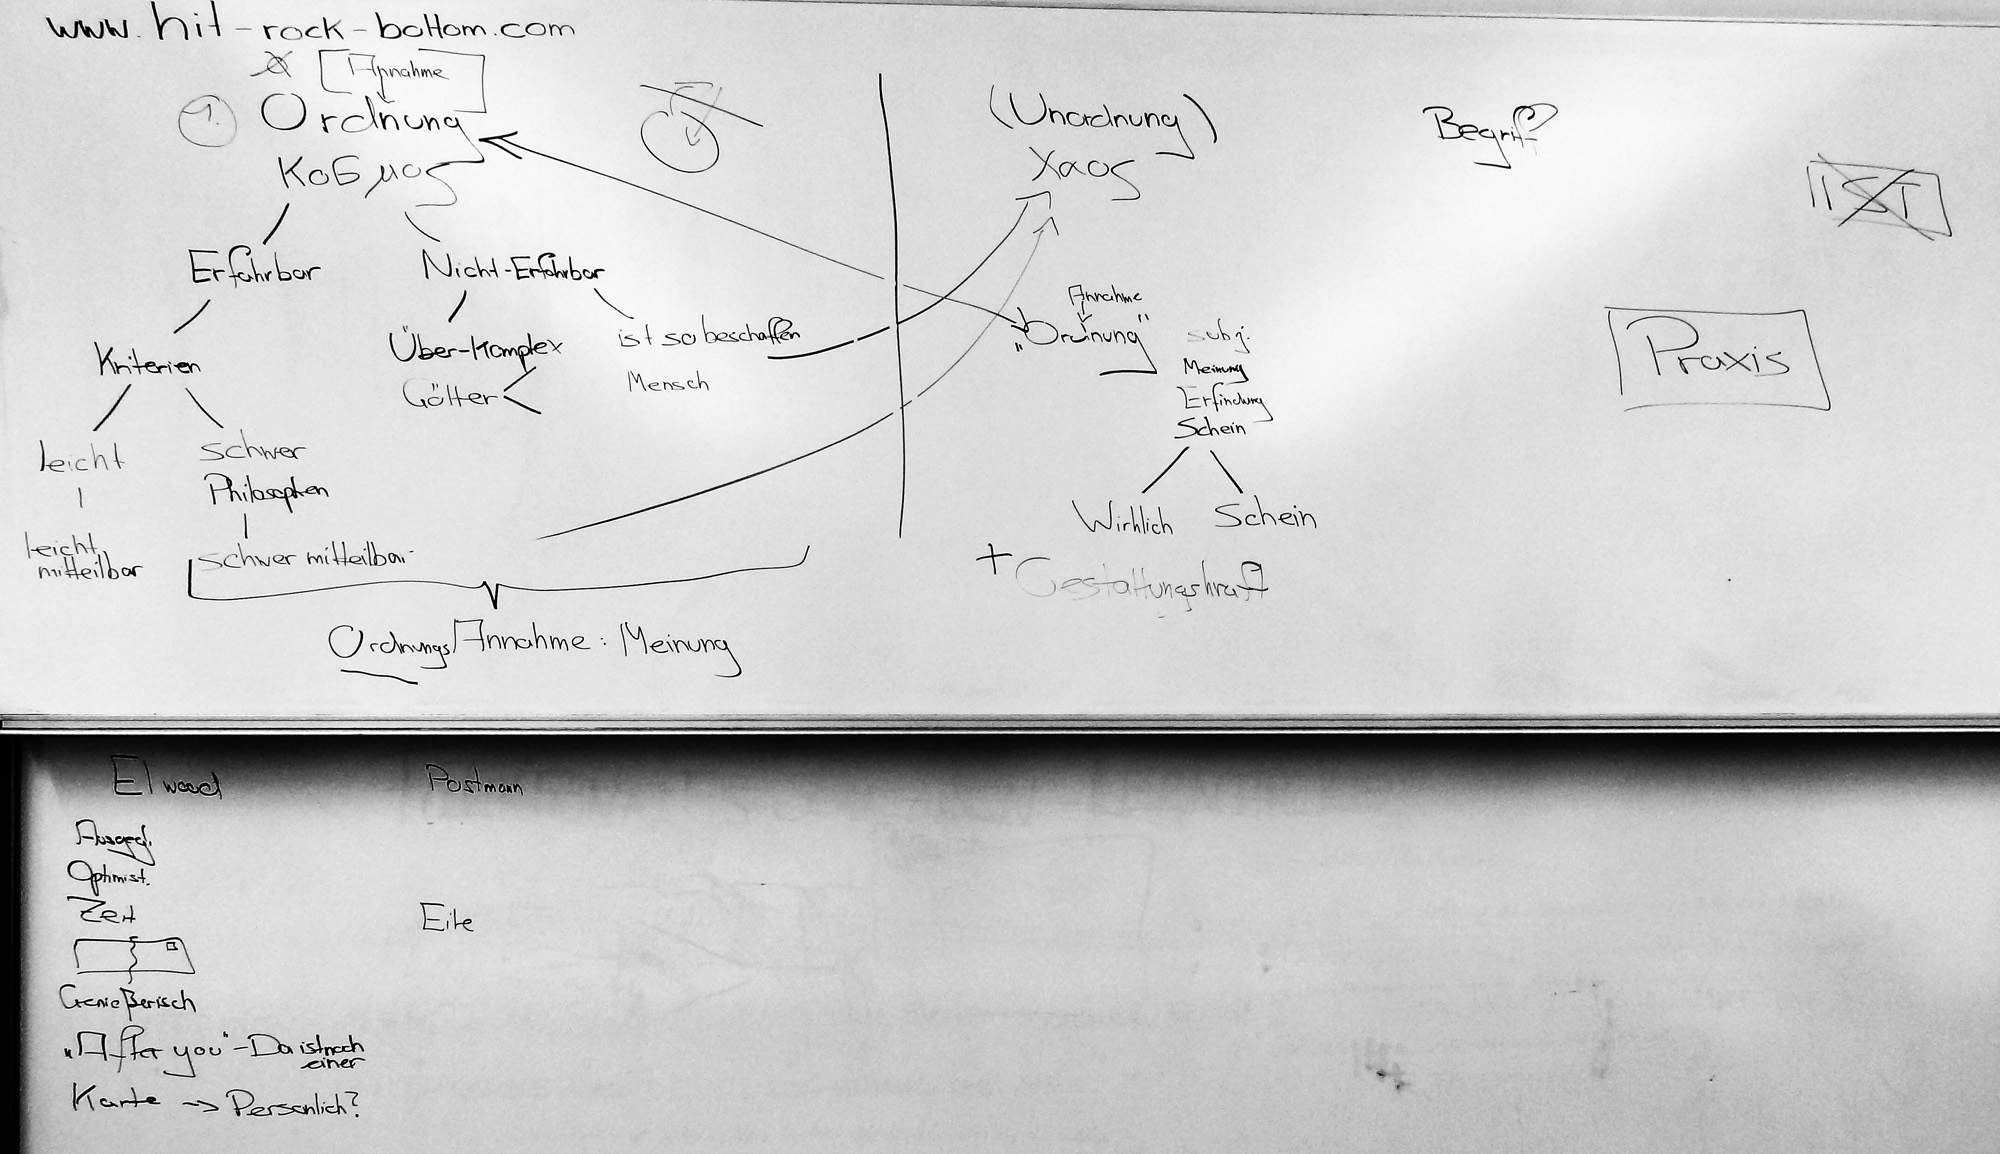 www.hit-rock-bottom.com
Annahme
1.
Ordnung
Κοσμος
Erfahrbar
Nicht-Erfahrbar
Kriterien
Über-Komplex
Götter
ist so beschaffen
Mensch
leicht
schwer
Philosophen
leicht mitteilbar
schwer mitteilbar
Ordnungs/Annahme: Meinung
(Unordnung)
Χαος
Annahme
„Ordnung"
subj.
Meinung
Erfindung
Schein
Wirklich
Schein
+ Gestaltungskraft
Begriff
IST
Praxis
Elwood
Postmann
Ausgegl.
Optimist.
Zeit
Eile
Genießerisch
„After you" - Da ist noch
einer
Karte -> Persönlich?